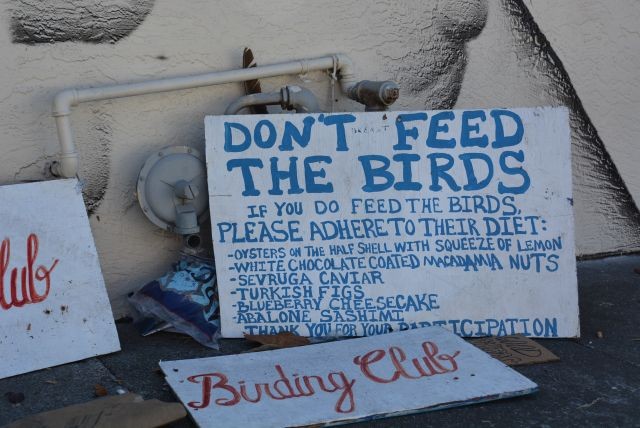 DON'T FEED
THE BIRDS
IF YOU DO FEED THE BIRDS,
PLEASE ADHERE TO THEIR DIET:
-OYSTERS ON THE HALF SHELL WITH SQUEEZE OF LEMON
-WHITE CHOCOLATE COATED MACADAMIA NUTS
-SEVRUGA CAVIAR
-TURKISH FIGS
-BLUEBERRY CHEESECAKE
-ABALONE SASHIMI
THANK YOU FOR YOUR PARTICIPATION
lub
Birding Club